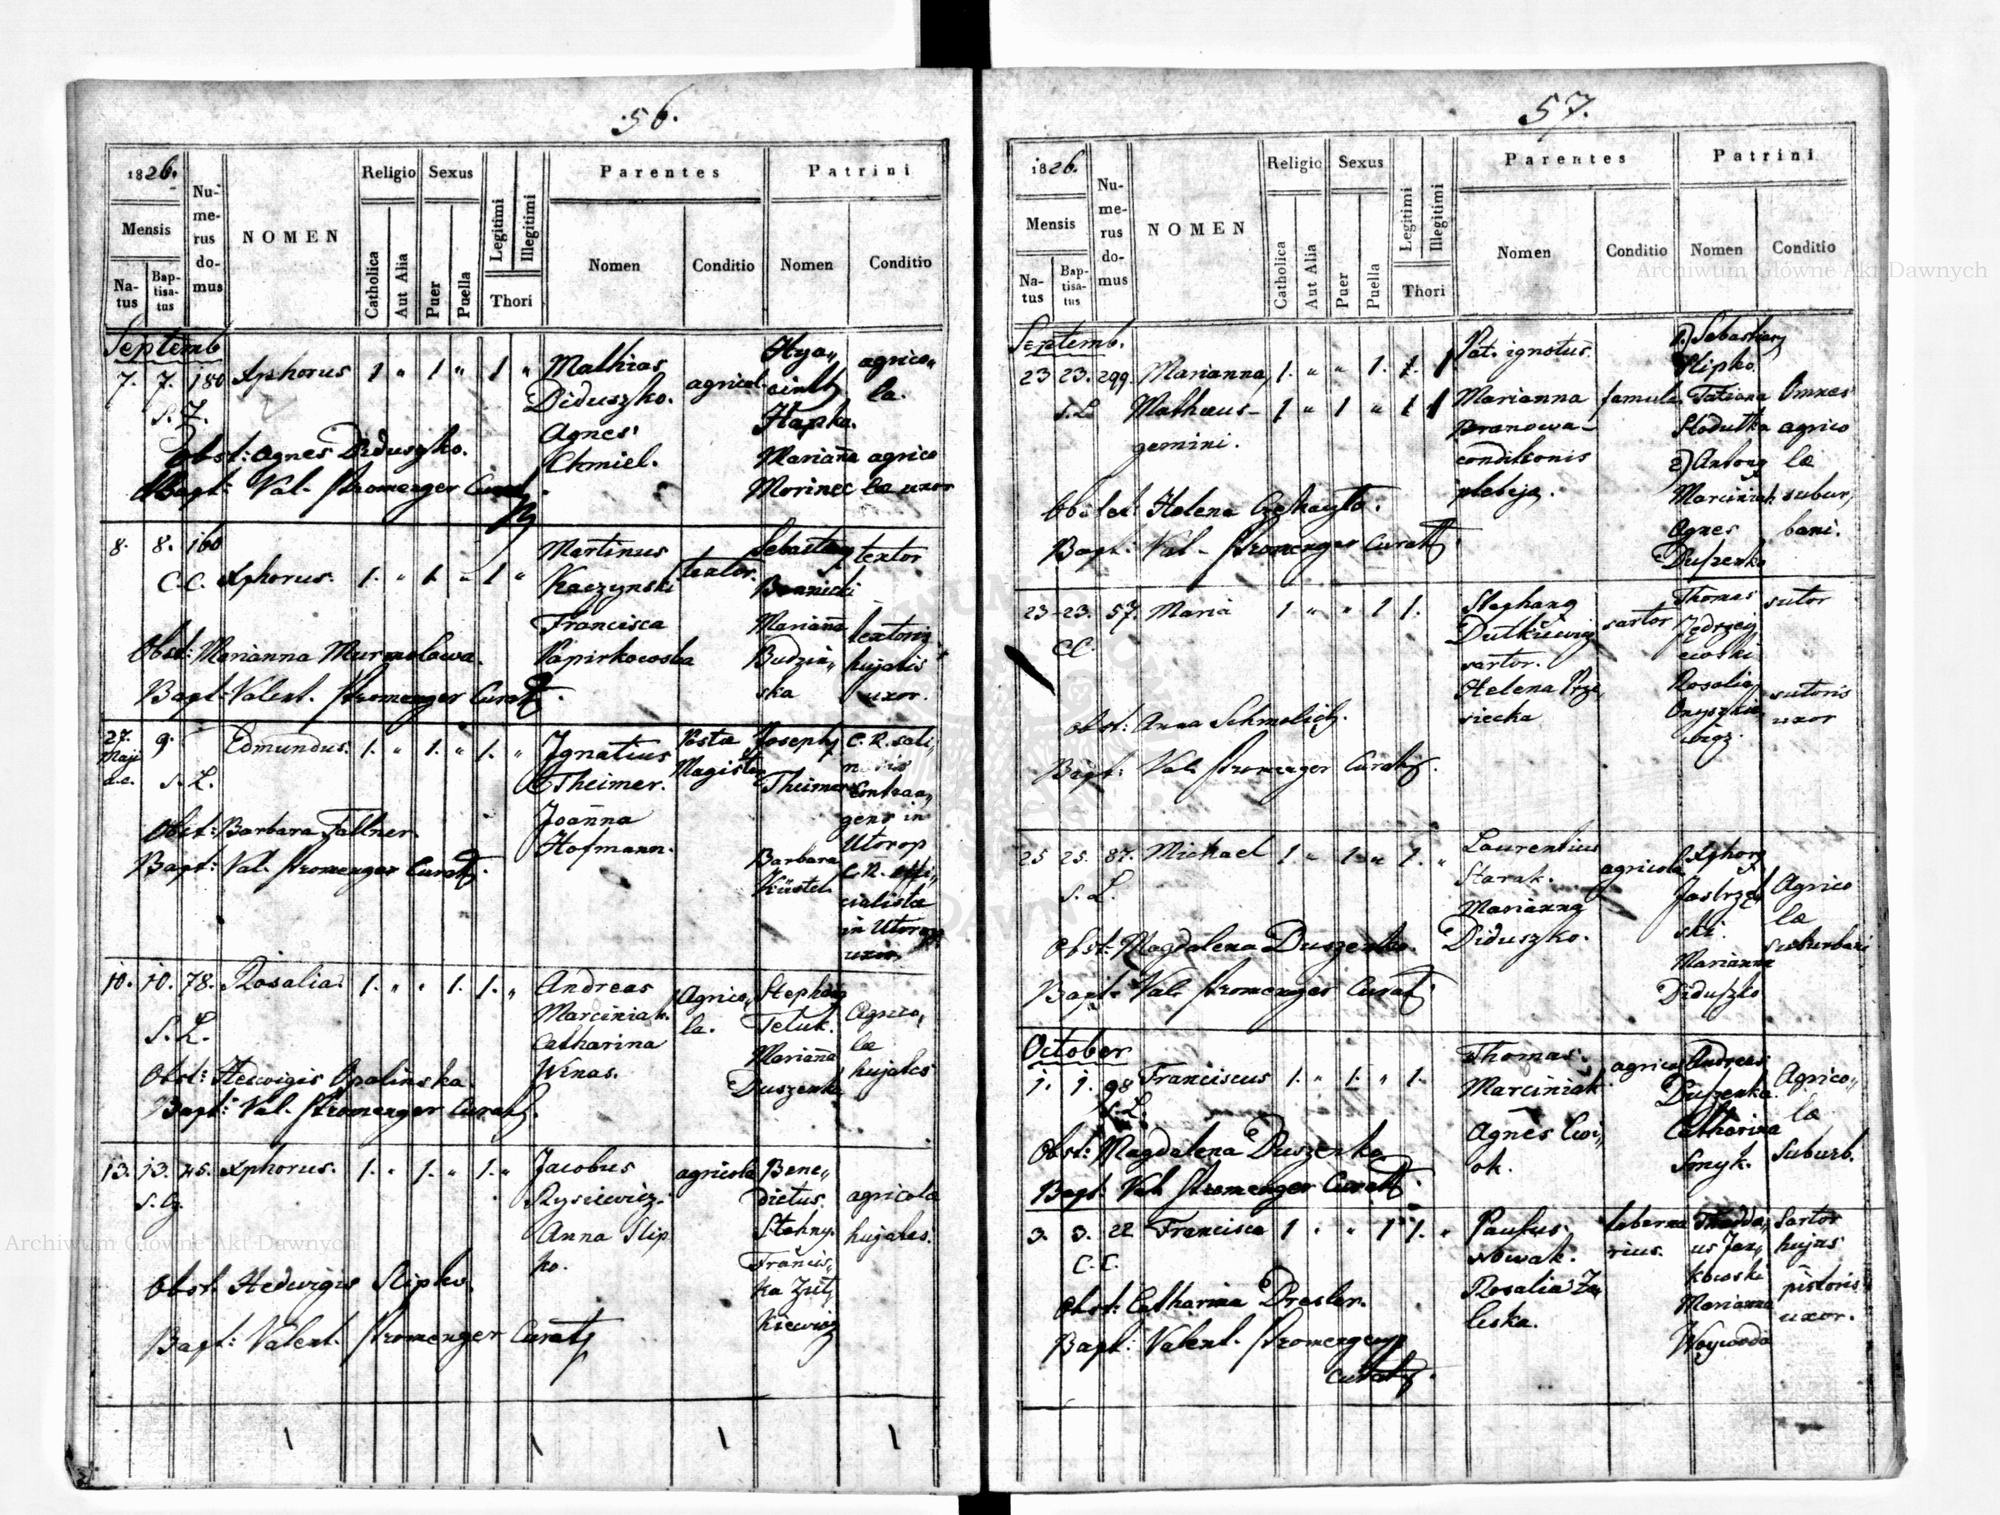 56.
1826.
Mensis
Natus
Baptisatus
Numerus domus
NOMEN
Religio
Catholica
Aut Alia
Sexus
Puer
Puella
Legitimi
Illegitimi
Thori
Parentes
Nomen
Conditio
Patrini
Nomen
Conditio
Septemb
7. 7. 180 Xphorus 1 " 1 " 1 "
S. L.
Mathias
Diduszko.
Agnes
Chmiel.
agricol.
Hya„
cinth
Hapka.
Marian̄a
Morinec
agrico„
la.
agrico
læ uxor
Obst: Agnes Diduszko.
Bapt: Val. Stromenger Curat
8. 8. 160
C.C. Xphorus. 1. " 1. " 1 "
Martinus
Kaczynski
Francisca
Papirkowska
textor.
Sebastian
Branicki
Marian̄a
Budzin„
ska
textor
textoris
hujatis
uxor.
Obst: Marianna Murmolowa.
Bapt: Valent. Stromenger Curat
27. Maji a.c. 9. Edmundus. 1. " 1. " 1. "
S. L.
Ignatius
Theimer.
Joan̄na
Hofmann.
Postæ
Magister
Joseph
Theimer
Barbara
Küstel
C. R. sali„
contraa„
gens in
Utorop
C. R. offi„
cialistæ
in Utorop
uxor.
Obst: Barbara Fallner
Bapt: Val. Stromenger Curat.
10. 10. 78. Rosalia 1. " " 1. 1. "
S. L.
Andreas
Marciniak.
Catharina
Winas.
Agrico„
la.
Stephan
Teluk.
Marian̄a
Duszenko
Agrico„
læ
hujates
Obst: Hedwigis Opalinska
Bapt: Val. Stromenger Curat.
13. 13. 45. Xphorus. 1. " 1. " 1. "
Jacobus
Rysiewicz.
Anna Slip
ko.
agricola
Bene„
dictus.
Stahny.
Francis„
ka Zut
kiewicz
agricola
hujates.
Obst. Hedwigis Slipko.
Bapt: Valent. Stromenger Curat
57.
1826.
Mensis
Natus
Baptisatus
Numerus domus
NOMEN
Religio
Catholica
Aut Alia
Sexus
Puer
Puella
Legitimi
Illegitimi
Thori
Parentes
Nomen
Conditio
Patrini
Nomen
Conditio
Septemb.
23 23. 299. Marianna 1. " " 1. 1. 1
S. L Mathæus 1 " 1 " 1 1
gemini.
Pat. ignotus.
Marianna
Pranowa
conditionis
plebeja.
famula
1.) Sebastian
Slipko.
Tatiana
Slodutka
2) Antony
Marciniak
Agnes
Duszenko
Omnes
agrico
læ
subur„
bani.
Obstet: Helena
Bapt: Val. Stromenger Curat
23 23. 57. Maria 1 " " 1 1.
CC.
Stephan
Dutkiewicz
sartor.
Helena Prze„
siecka
sartor
Thomas
Jędrzey
ewski
Rosalia
Onyszkie
wicz.
sutor
sutoris
uxor
Obst: Anna Schmolich.
Bapt: Val. Stromenger Curat.
25 25. 87. Michael 1 " 1 " 1. "
S. L.
Laurentius
Starak.
Marianna
Diduszko.
agricola
Xphor
Jastrzęb
ski.
Marianna
Diduszko
Agrico
læ
suburbani
Obst: Magdalena Duszenko.
Bapt. Val. Stromenger Curat
October
1. 1. 98 Franciscus 1. " 1. " 1.
S. L.
Thomas
Marciniak
Agnes Cwi„
ok.
agricola
Andreas
Duszenko
Catharina
Smyk.
Agrico„
læ
suburb.
Obst: Magdalena Duszenko
Bapt: Val. Stromenger Curat.
3. 3. 22 Francisca 1 " " 1 1. "
C. C.
Paulus
Nowak.
Rosalia Za„
leska.
taberna
rius.
Thaddæ„
us Jan„
kowski
Marianna
Woywoda
Sartor
hujas
pistoris
uxor.
Obst: Catharina Dresler.
Bapt: Valent. Stromenger
Curat.
Archiwum Główne Akt Dawnych
Archiwum Główne Akt Dawnych